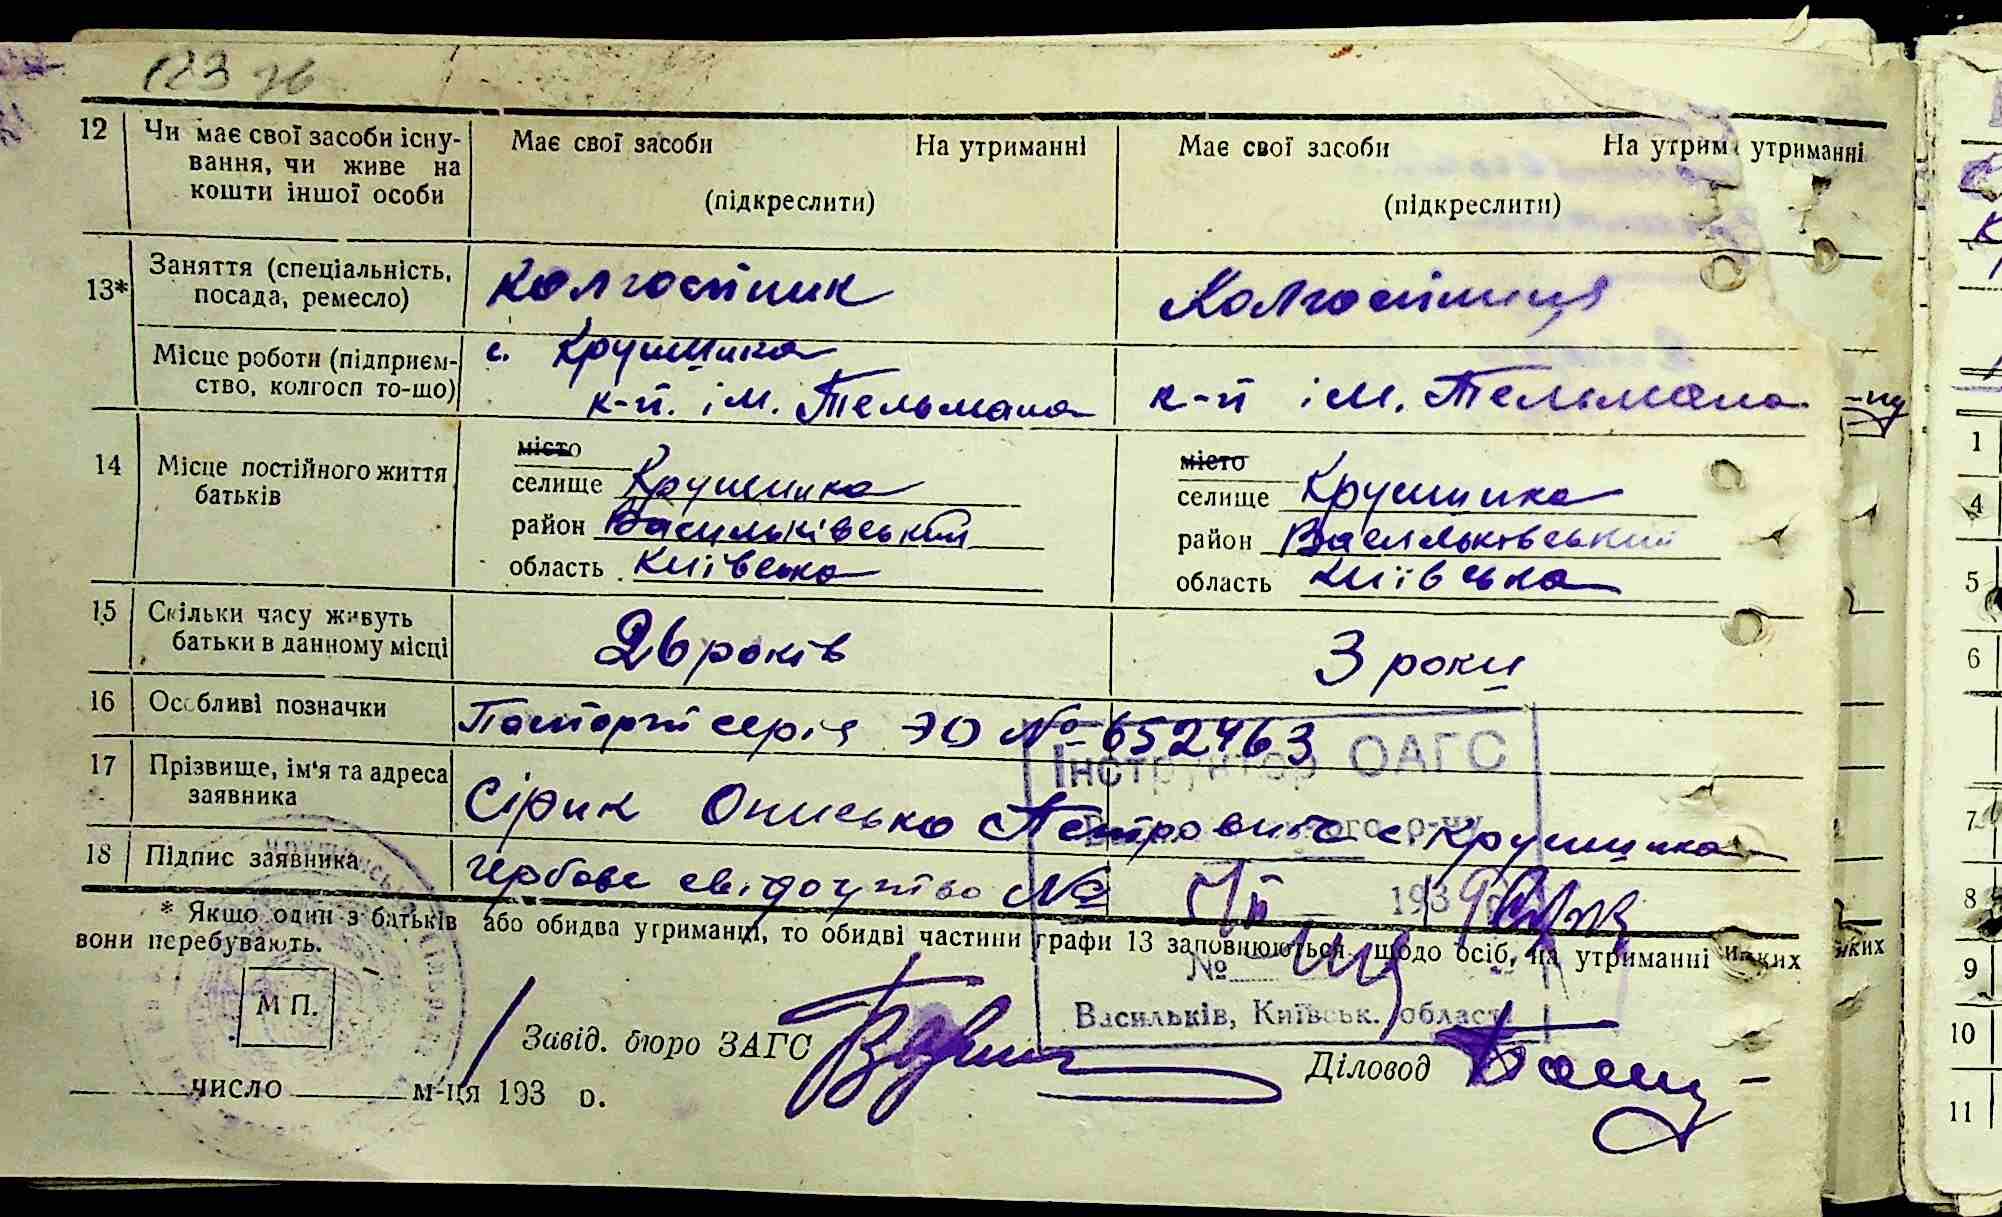 123
12 Чи має свої засоби існу- Має свої засоби На утриманні Має свої засоби На утрим утриманні
вання, чи живе на
кошти іншої особи (підкреслити) (підкреслити)
13* Заняття (спеціальність, Колгоспник Колгоспниця
посада, ремесло)
Місце роботи (підприєм- с. Крушинка
ство, колгосп то-що) к-п. ім. Тельмана к-п ім. Тельмана
14 Місце постійного життя місто місто
батьків селище Крушинка селище Крушинка
район Васильківський район Васильковський
область Київська область Київська
15 Скільки часу живуть 26 років 3 роки
батьки в данному місці
16 Особливі позначки Паспорт серія ЭО № 652463
17 Прізвище, ім'я та адреса Сірик Онисько Петрович с Крушинка
заявника
18 Підпис заявника Гербове свідоцтво №
Інструктор ОАГС
р-ну
193
№
Васильків, Київськ. області
* Якщо один з батьків або обидва утриманці, то обидві частини графи 13 заповнюються щодо осіб, на утриманні яких
вони перебувають.
М П.
Завід. бюро ЗАГС Діловод
число м-ця 193 р.
1
4
5
6
7
8
9
10
11